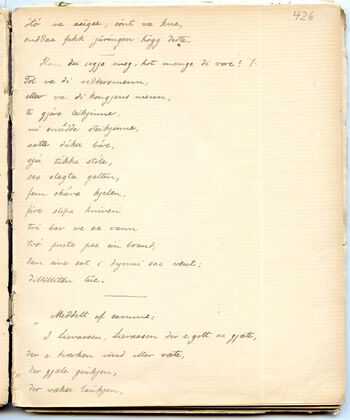 426
tvo va asigæ, sönt va kne,
enddaa fekk jüringen högg dette.
Kan dei segja meg, hot mange di vore? /.
Tol va di riddersmenn,
eller va di kongjens menn,
ti gjöre leikjinne,
ni snudde steikjinne,
aatte dukar bore,
sjú tukka stole,
sex slagta galten,
fem skúra kjelen,
fire slipa kniven
tri bar ve aa vann
tvo pusta paa ein brand,
dan eine sat i dynni saa vent;
dillilliten tüe.
Meddelt af samme;
I Liavaasen, Liavaasen der e gott aa gjæte,
der e hverken vind eller væte,
der gjæle gaukjen,
der vækse laukjen,